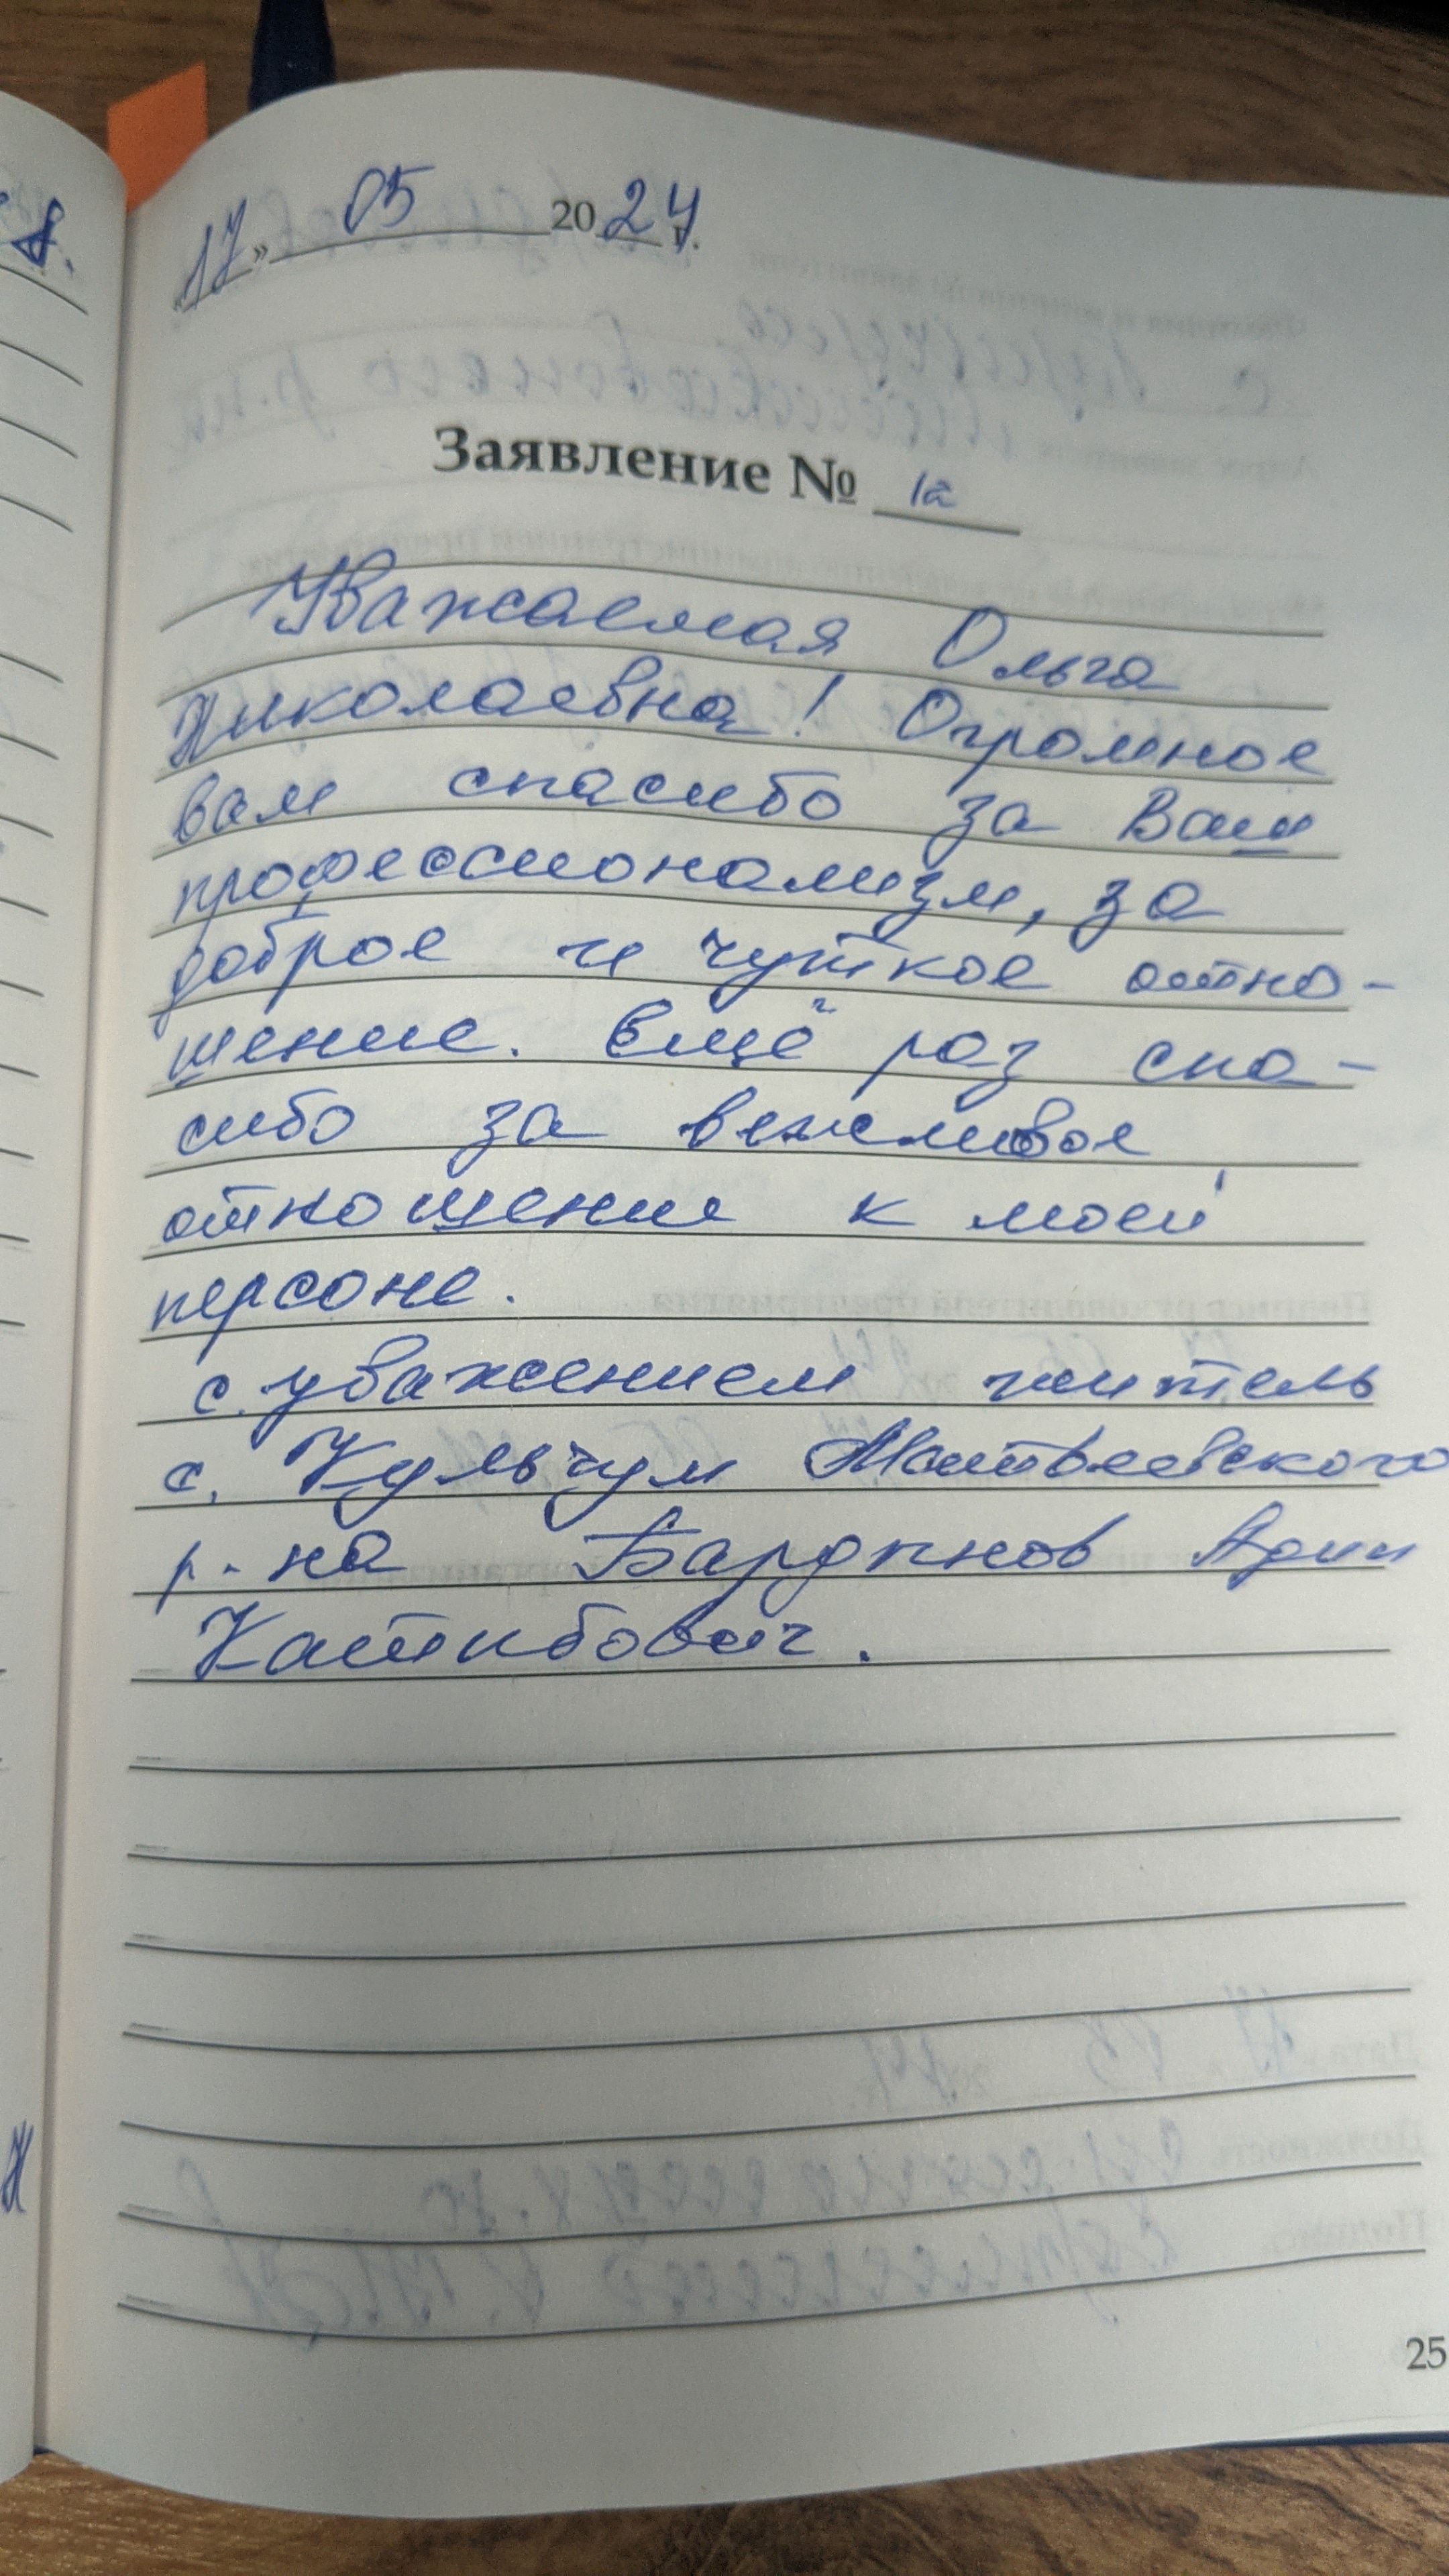 «17» 05 2024 г.
Заявление № 12
Уважаемая Ольга
Николаевна! Огромное
вам спасибо за Ваш
профессионализм, за
доброе и чуткое отно-
шение. Ещё раз спа-
сибо за вежливое
отношение к моей
персоне.
с уважением житель
с. Кульчум Матвеевского
р-на
Катибович.
25